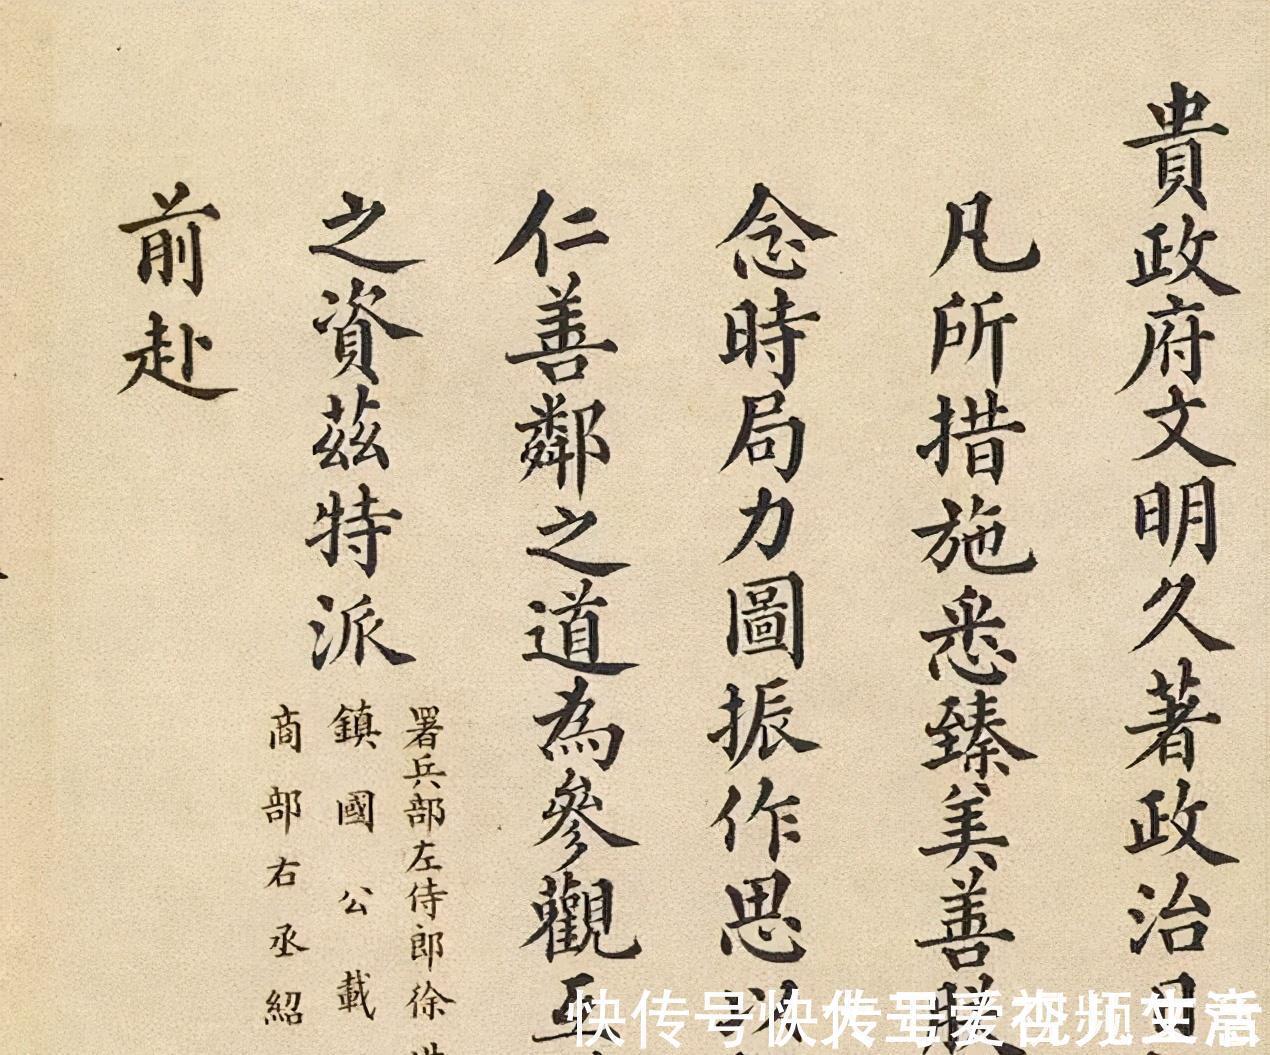 貴政府文明久著政治日
凡所措施悉臻美善朕
念時局力圖振作思以
仁善鄰之道為參觀互
之資茲特派
署兵部左侍郎徐世
鎮國公載
商部右丞紹
前赴
快传号